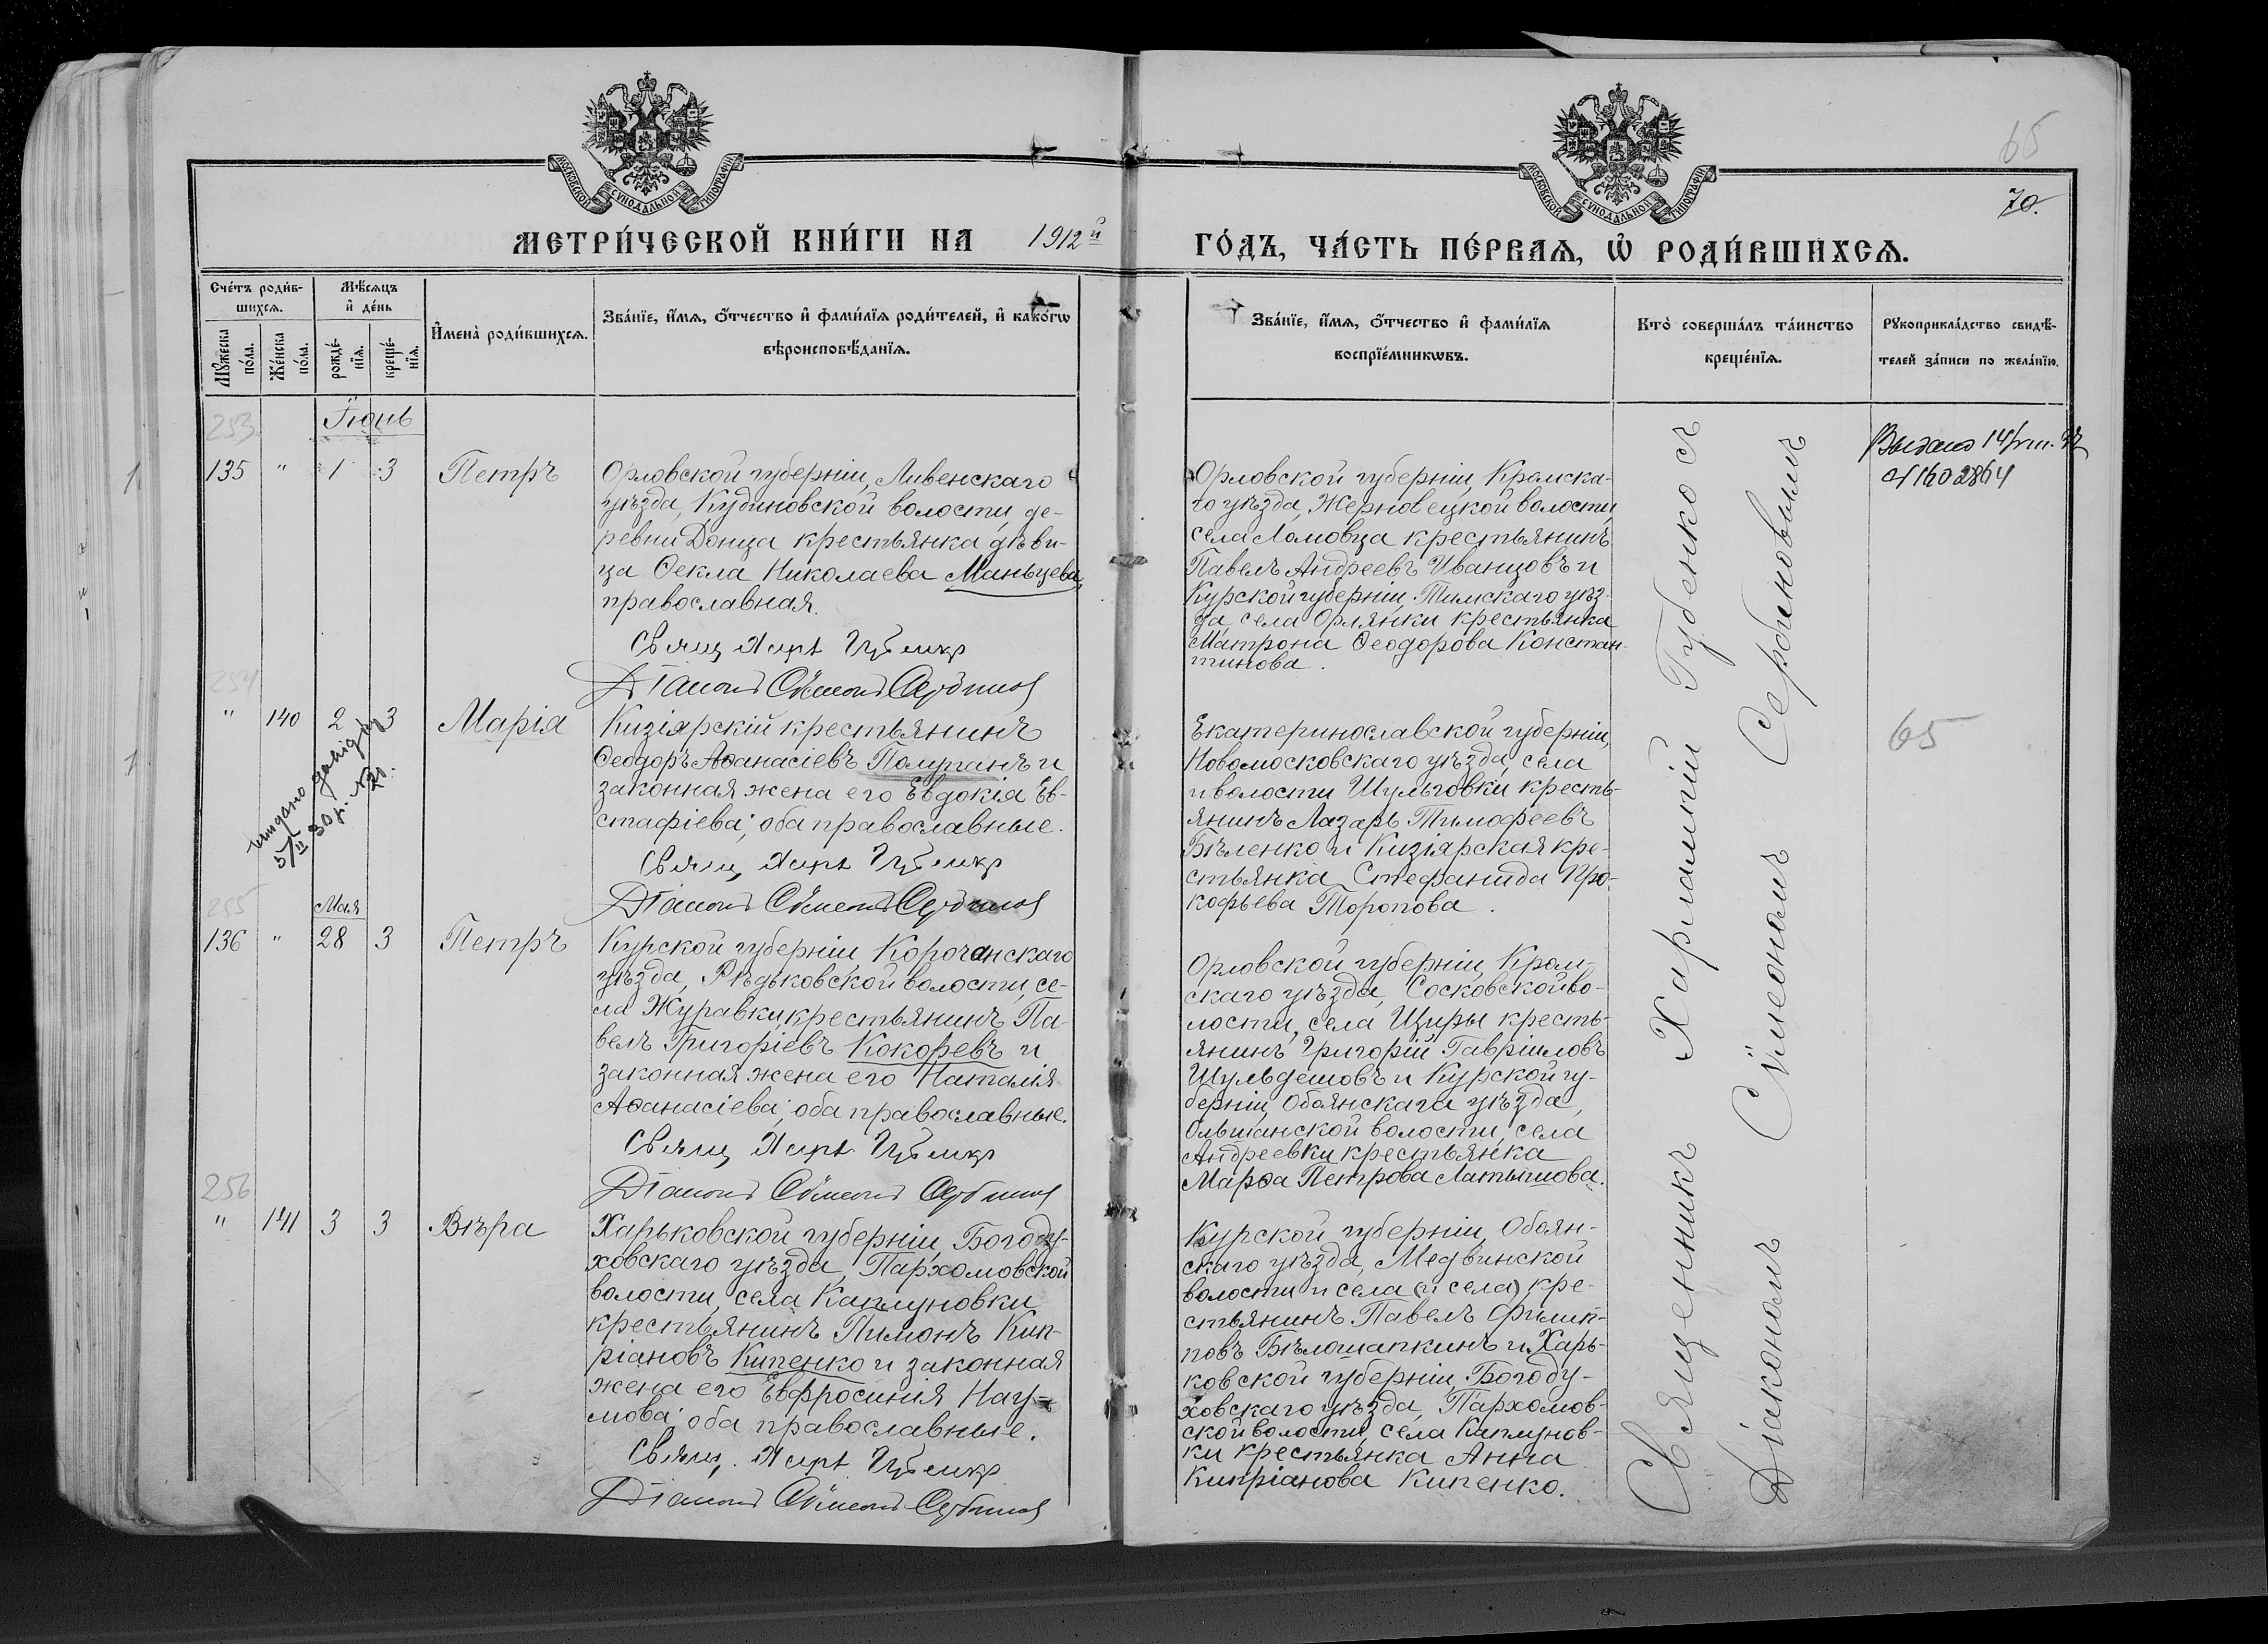 65
70.
МОСКОВСКОЙ СѴНОДАЛЬНОЙ ТИПОГРАФІИ
МОСКОВСКОЙ СѴНОДАЛЬНОЙ ТИПОГРАФІИ
МЕТРИ́ЧЕСКОЙ КНИ́ГИ НА 1912й ГО́ДЪ, ЧА́СТЬ ПЕ́РВАЯ, Ѡ҆ РОДИ́ВШИХСѦ.
Сче́тъ роди́в-
шихсѧ.
Мꙋжеска
по́ла.
Же́нска
по́ла.
Мѣ́сѧцъ
и҆ де́нь
рожде́-
нїѧ.
креще́-
нїѧ.
И҆мена̀ роди́вшихсѧ.
Зва́нїе, и҆́мѧ, ѻ҆́тчество и҆ фами́лїѧ роди́телей, и҆ како́гѡ
вѣроисповѣ́данїѧ.
Зва́нїе, и҆́мѧ, ѻ҆́тчество и҆ фами́лїѧ
воспрїе́мникѡвъ.
Кто̀ соверша́лъ та́инство
креще́нїѧ.
Рꙋкоприкла́дство свидѣ́-
телей за́писи по жела́нїю.
253
Іюнь
135 " 1 3 Петръ
Орловской губерніи, Ливенскаго
уѣзда, Кудиновской волости, де-
ревни Донца крестьянка дѣви-
ца Ѳекла Николаева Маньцева,
православная.
Свящ. Харл. Губенко
Діаконъ Сѵмеонъ Сербиновъ
Орловской губерніи, Кромска-
го уѣзда, Жерновецкой волости,
села Ломовца крестьянинъ
Павелъ Андреевъ Иванцовъ и
Курской губерніи, Тимскаго уѣз-
да, села Орлянки крестьянка
Матрона Ѳеодорова Констан-
тинова.
Выдано
254
" 140 2 3 Марія
Кизіярскій крестьянинъ
Ѳеодоръ Аѳанасіевъ Полтанъ и
законная жена его Евдокія Ев-
стафіева; оба православные.
Свящ. Харл. Губенко
Діаконъ Сѵмеонъ Сербиновъ
Екатеринославской губерніи,
Новомосковскаго уѣзда, села
и волости Шульговки кресть-
янинъ Лазарь Тимофеевъ
Бѣленко и Кизіярская кре-
стьянка Стефанида Про-
кофьева Торопова.
65
255
Мая
136 " 28 3 Петръ
Курской губерніи, Корочанскаго
уѣзда, Рѣдьковской волости, се-
ла Журавки, крестьянинъ Па-
велъ Григоріевъ Кокоревъ и
законная жена его Наталія
Аѳанасіева; оба православные.
Свящ. Харл. Губенко
Діаконъ Сѵмеонъ Сербиновъ
Орловской губерніи, Кром-
скаго уѣзда, Сосковской во-
лости, села Щиры кресть-
янинъ Григорій Гавріиловъ
Шульдешовъ и Курской гу-
берніи, Обоянскаго уѣзда,
Ольшанской волости, села
Андреевки крестьянка
Марѳа Петрова Латышова.
256
" 141 3 3 Вѣра
Харьковской губерніи, Богоду-
ховскаго уѣзда, Пархомовской
волости, села Каплуновки
крестьянинъ Пимонъ Кип-
ріановъ Кипенко и законная
жена его Евфросинія Нау-
мова; оба православные.
Свящ. Харл. Губенко
Діаконъ Сѵмеонъ Сербиновъ
Курской губерніи, Обоян-
скаго уѣзда, Медвинской
волости и села (и села) кре-
стьянинъ Павелъ Филип-
повъ Бѣлошапкинъ и Харь-
ковской губерніи, Богоду-
ховскаго уѣзда, Пархомов-
ской волости, села Каплунов-
ки крестьянка Анна
Кипріанова Кипенко.
Священникъ Харлампій Губенко съ
Діакономъ Сѵмеономъ Сербиновымъ